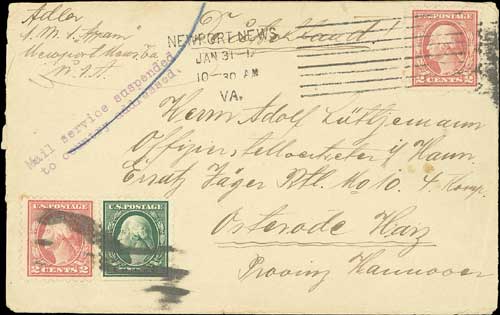 Adler
S.M.S.
Newport News Va
U.S.A.
NEWPORT NEWS
JAN 31-1
10-30 AM
VA.
U.S. POSTAGE
2 CENTS 2
Mail service suspended
to country addressed.
Herrn Adolf Lüttjemann
Offizierstellvertreter
Ersatz Jäger Btl. No 10. 4. Komp.
Osterode Harz
Provinz Hannover
U.S. POSTAGE
2 CENTS 2
U.S. POSTAGE